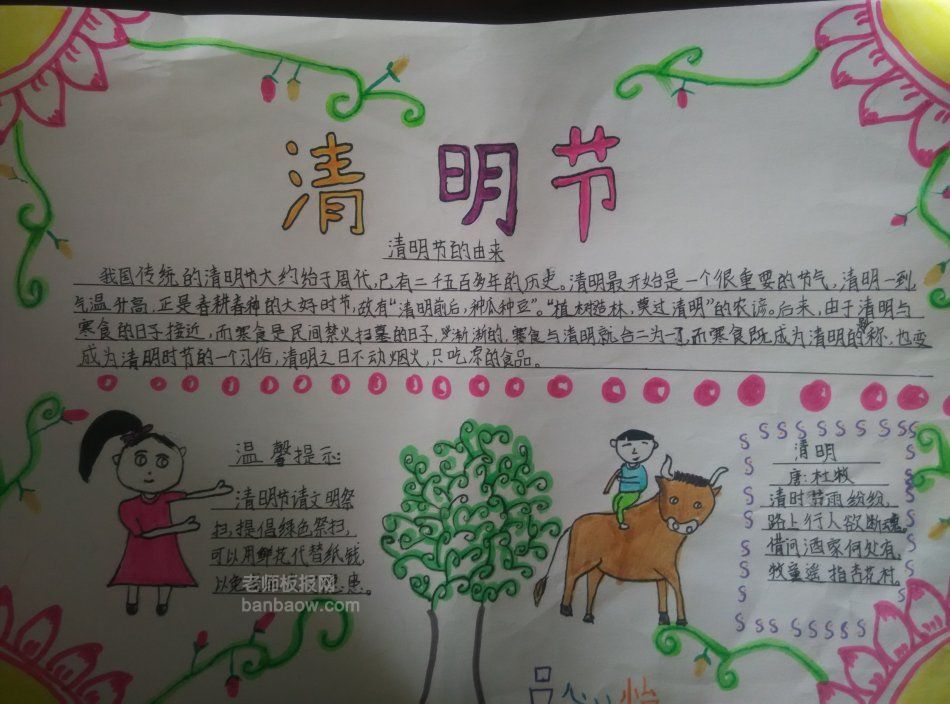 清明节
清明节的由来
我国传统的清明节大约始于周代,已有二千五百多年的历史。清明最开始是一个很重要的节气,清明一到
气温升高,正是春耕春种的大好时节,故有“清明前后,种瓜种豆”。“植树造林,莫过清明”的农谚。后来,由于清明与
寒食的日子接近,而寒食是民间禁火扫墓的日子,渐渐的,寒食与清明就合二为一了,而寒食既成为清明的称,也变
成为清明时节的一个习俗,清明之日不动烟火,只吃凉的食品。
温馨提示:
清明节请文明祭
扫,提倡绿色祭扫,
可以用鲜花代替纸钱,
以免患。
老师板报网
banbaow.com
清明
唐:杜牧
清时节雨纷纷,
路上行人欲断魂
借问酒家何处有,
牧童遥指杏花村